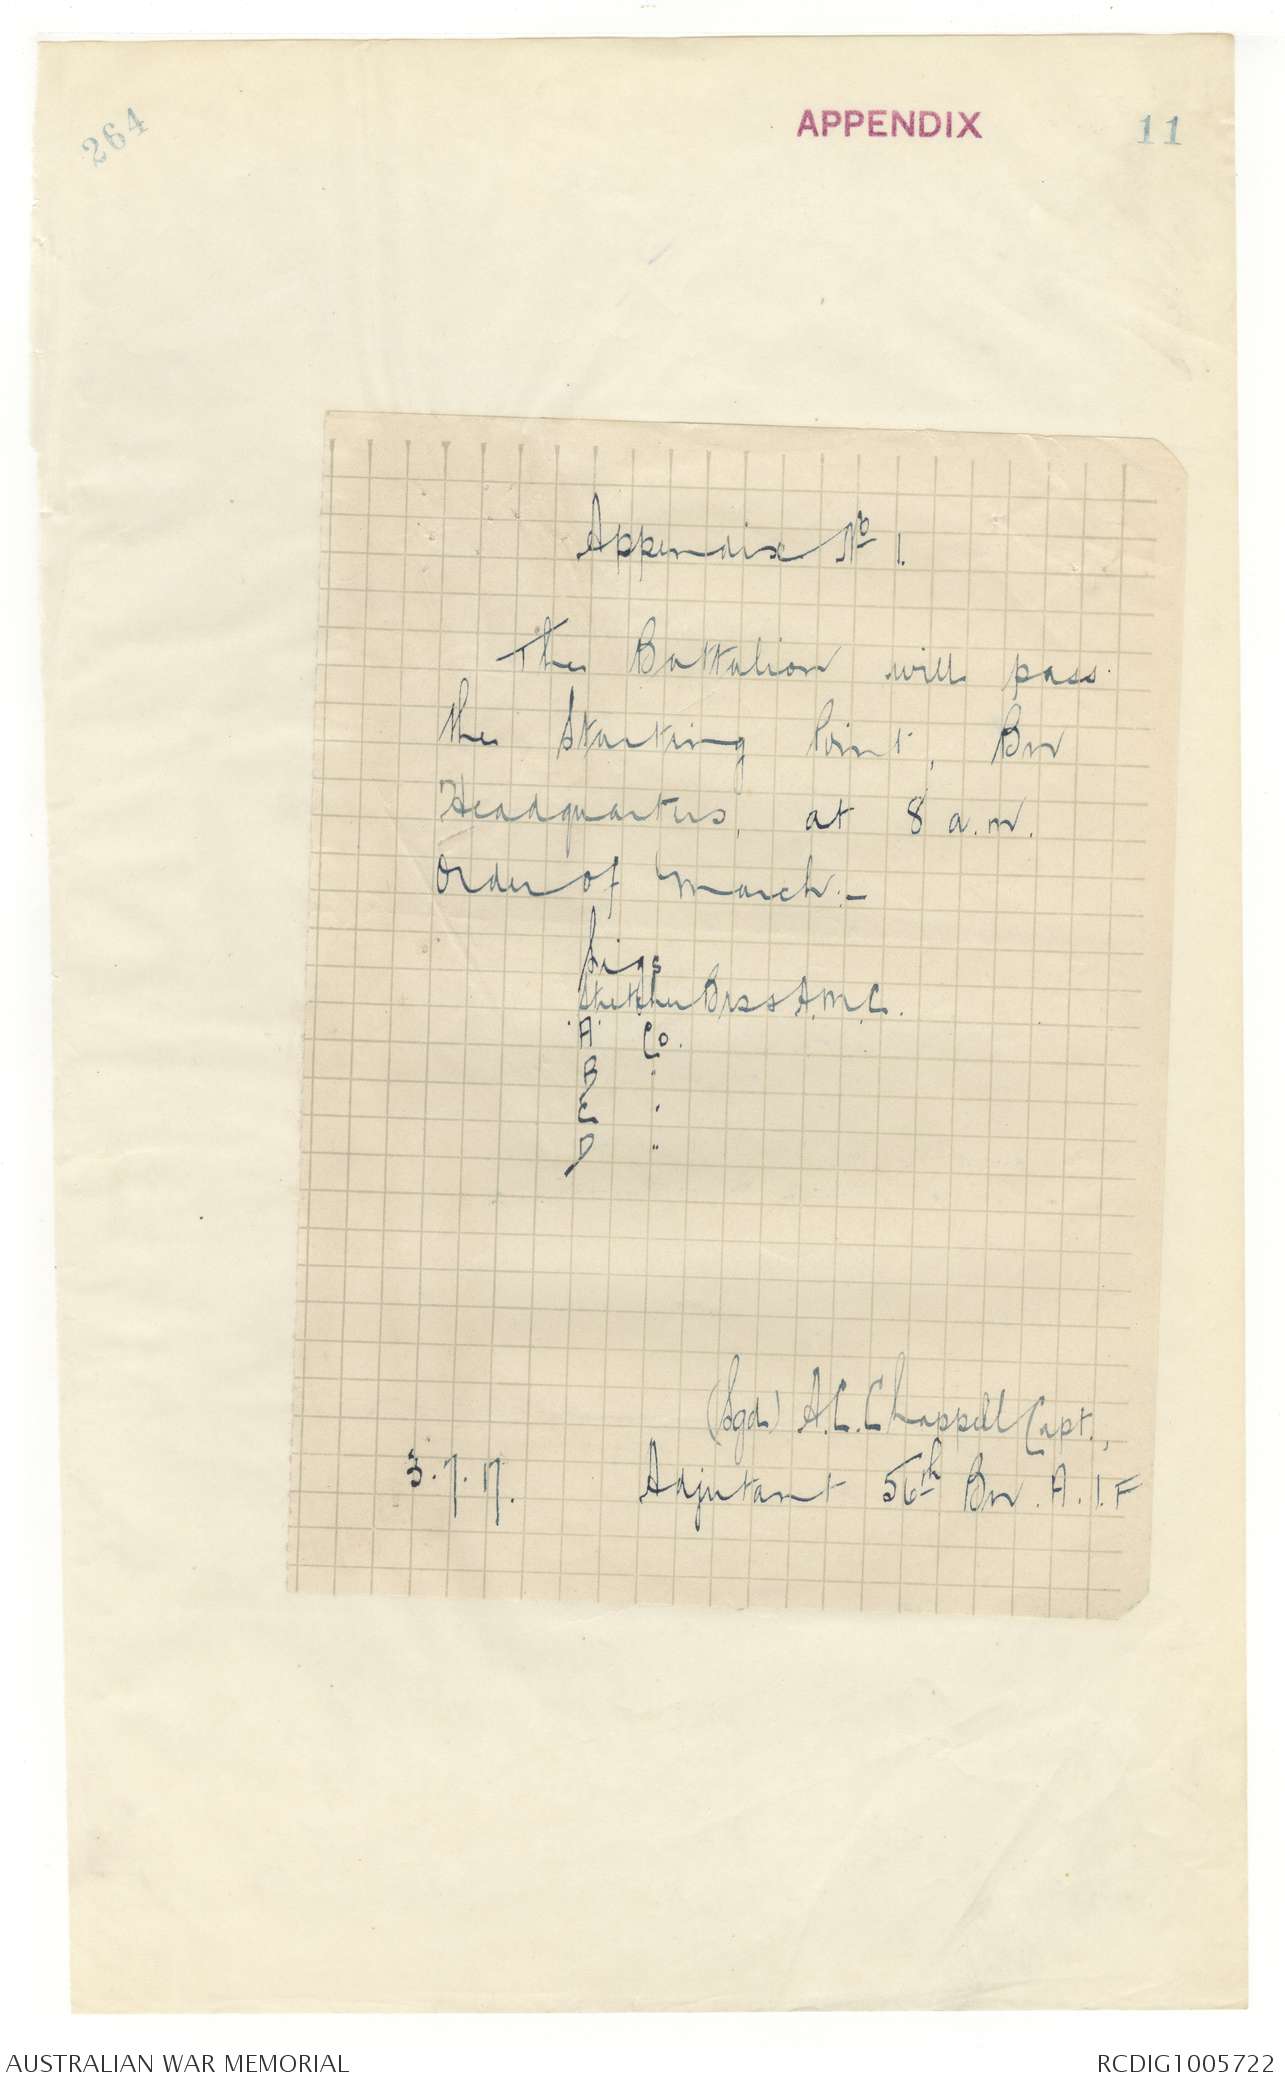 264
APPENDIX 11
Appendix No 1.
The Battalion will pass
the Starting Point, Bn
Headquarters, at 8 a.m.
Order of March:-
Sigs
Stretcher Brs & A.M.C.
"A" Co.
B "
C "
D "
(Sgd) A.C. Chappell Capt.,
3.7.17. Adjutant 56th Bn. A.I.F
AUSTRALIAN WAR MEMORIAL RCDIG1005722